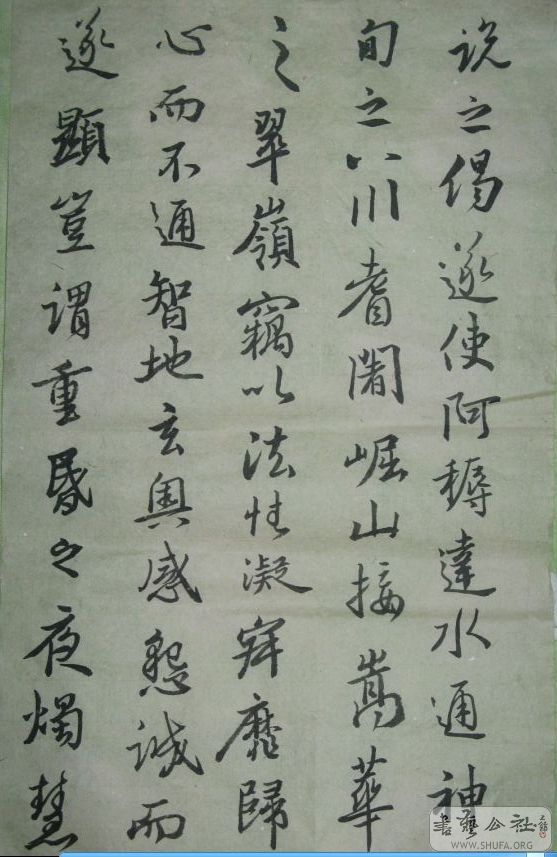 説之偈遂使阿耨達水通神
甸之八川耆闍崛山接嵩華
之翠嶺竊以法性凝寂靡歸
心而不通智地玄奥感懇誠而
遂顯豈謂重昏之夜燭慧
書藝公社
WWW.SHUFA.ORG